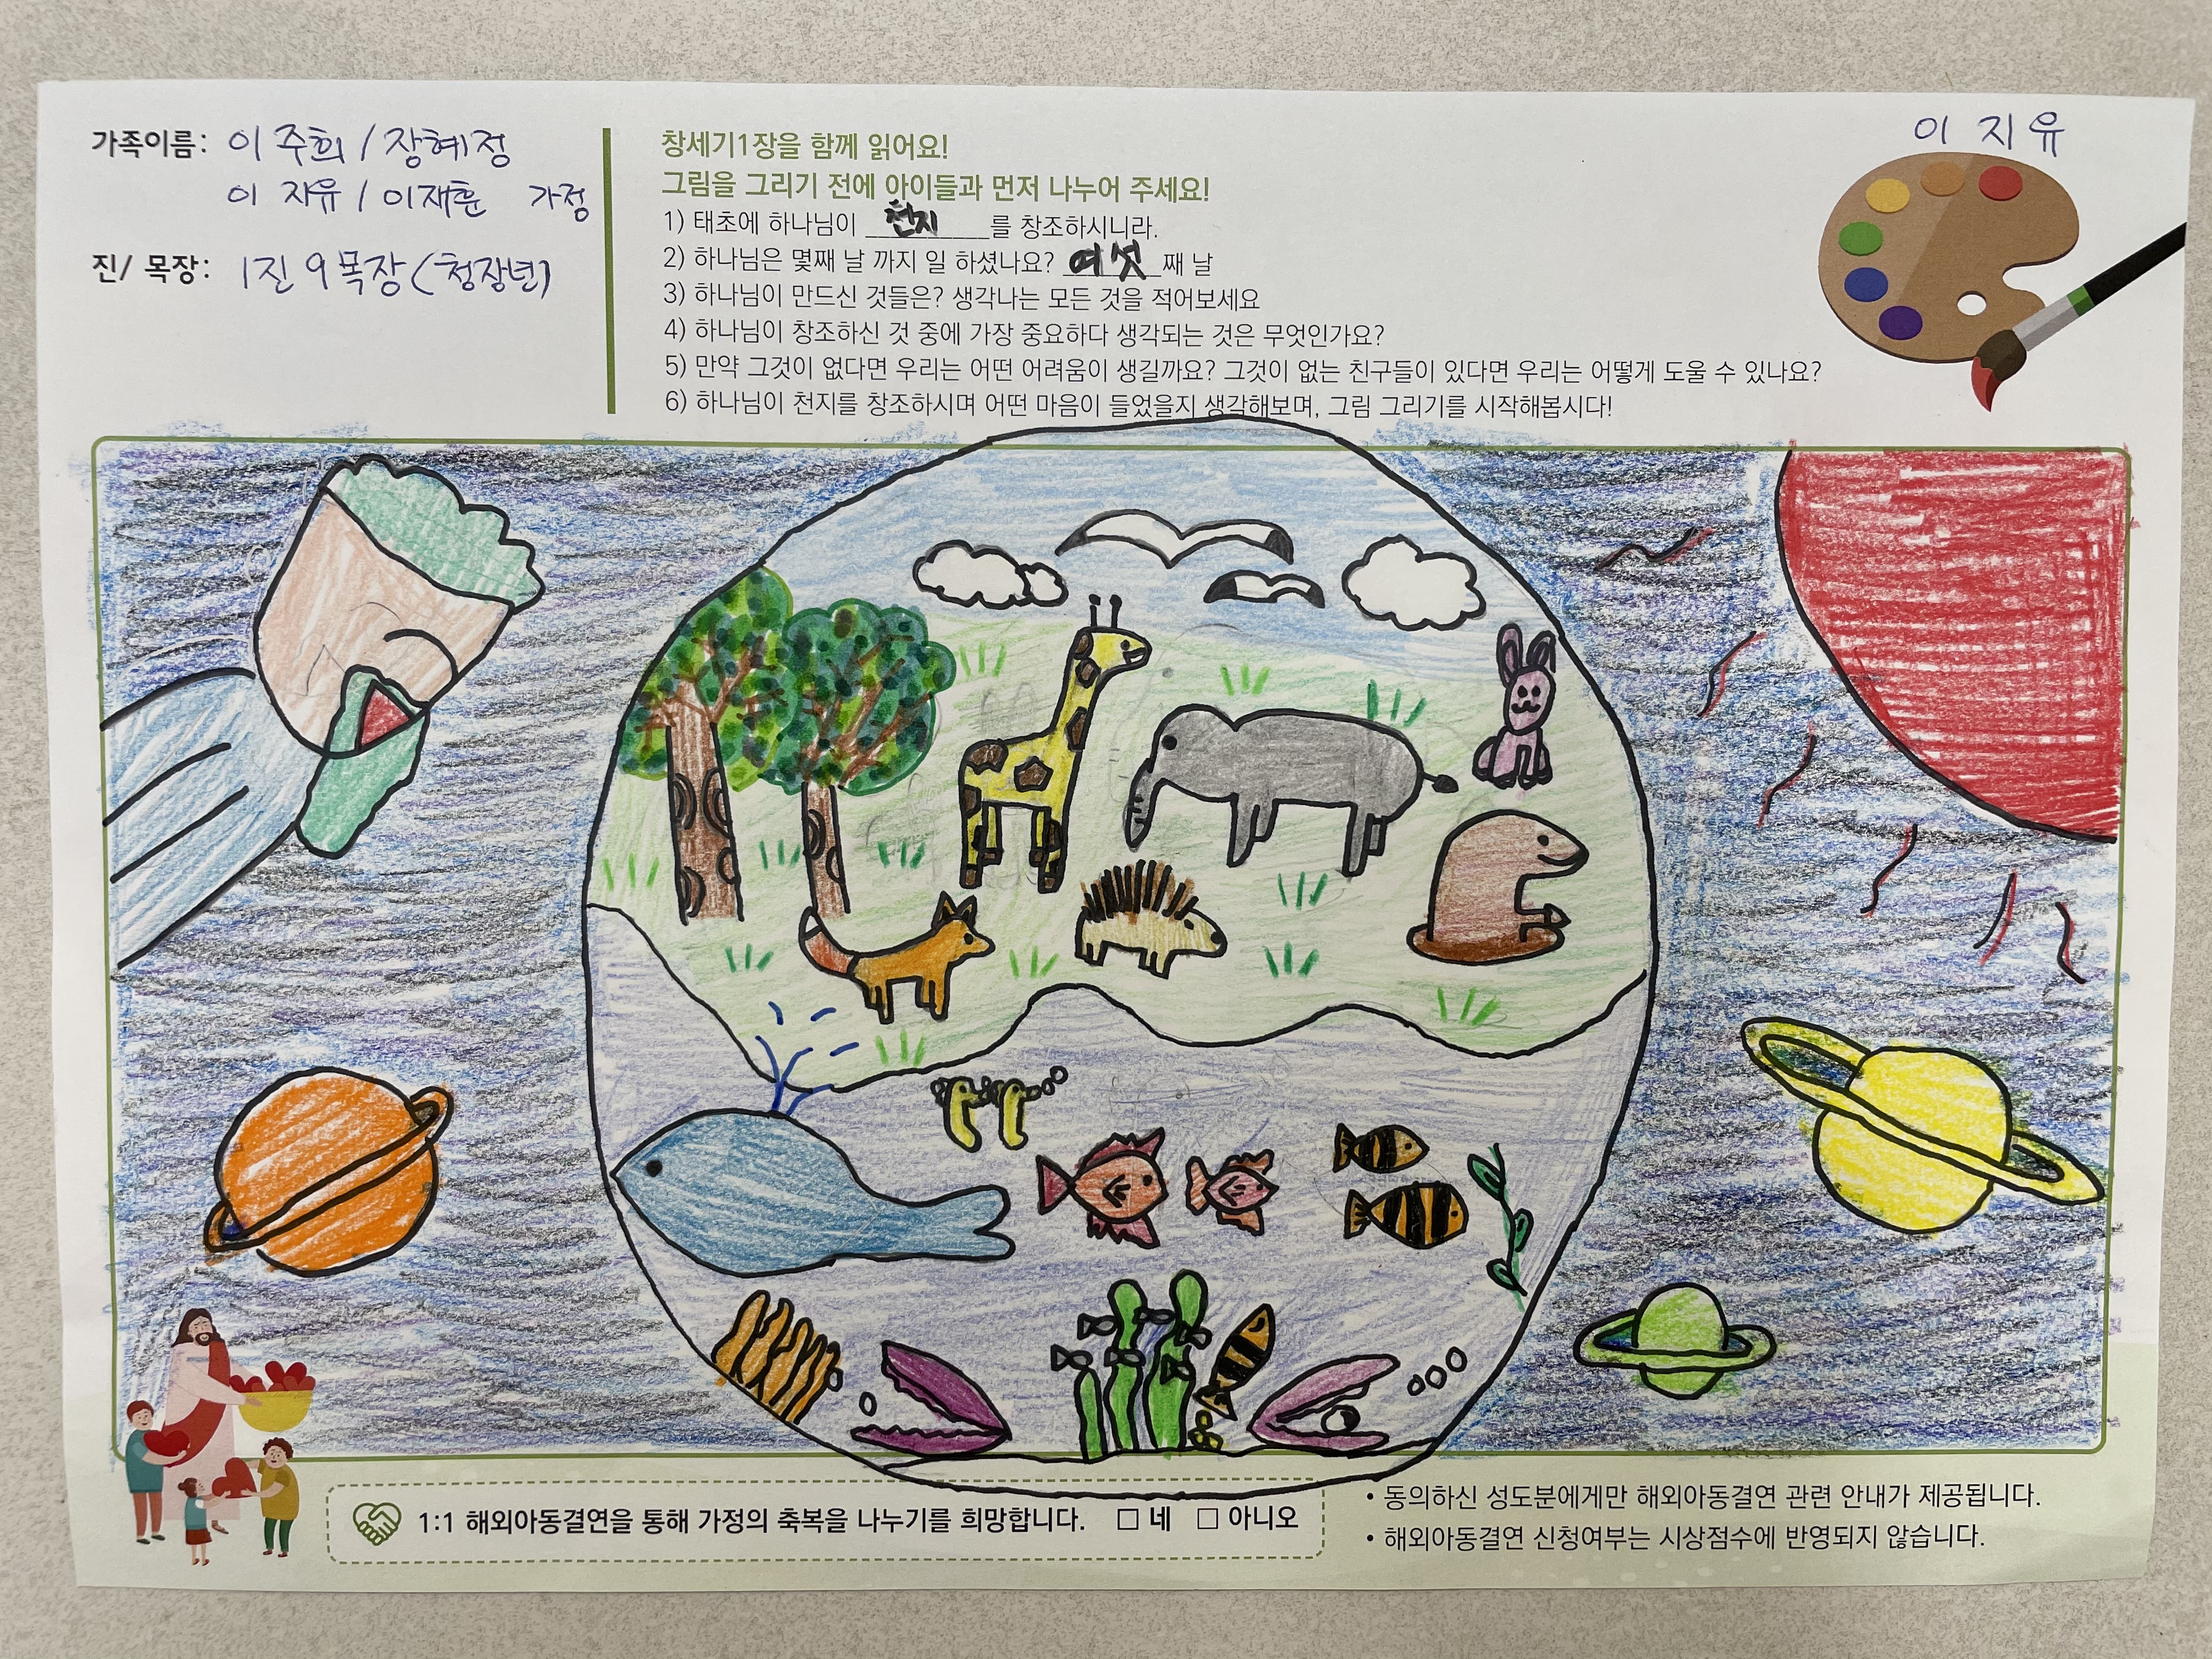 가족이름: 이주희 / 장혜정
이지유 / 이재훈 가정
진/ 목장: 1진 9목장 (청장년)
창세기1장을 함께 읽어요!
그림을 그리기 전에 아이들과 먼저 나누어 주세요!
1) 태초에 하나님이 천지를 창조하시니라.
2) 하나님은 몇째 날 까지 일 하셨나요? 여섯째 날
3) 하나님이 만드신 것들은? 생각나는 모든 것을 적어보세요
4) 하나님이 창조하신 것 중에 가장 중요하다 생각되는 것은 무엇인가요?
5) 만약 그것이 없다면 우리는 어떤 어려움이 생길까요? 그것이 없는 친구들이 있다면 우리는 어떻게 도울 수 있나요?
6) 하나님이 천지를 창조하시며 어떤 마음이 들었을지 생각해보며, 그림 그리기를 시작해봅시다!
이지유
1:1 해외아동결연을 통해 가정의 축복을 나누기를 희망합니다. □ 네 □ 아니오
• 동의하신 성도분에게만 해외아동결연 관련 안내가 제공됩니다.
• 해외아동결연 신청여부는 시상점수에 반영되지 않습니다.